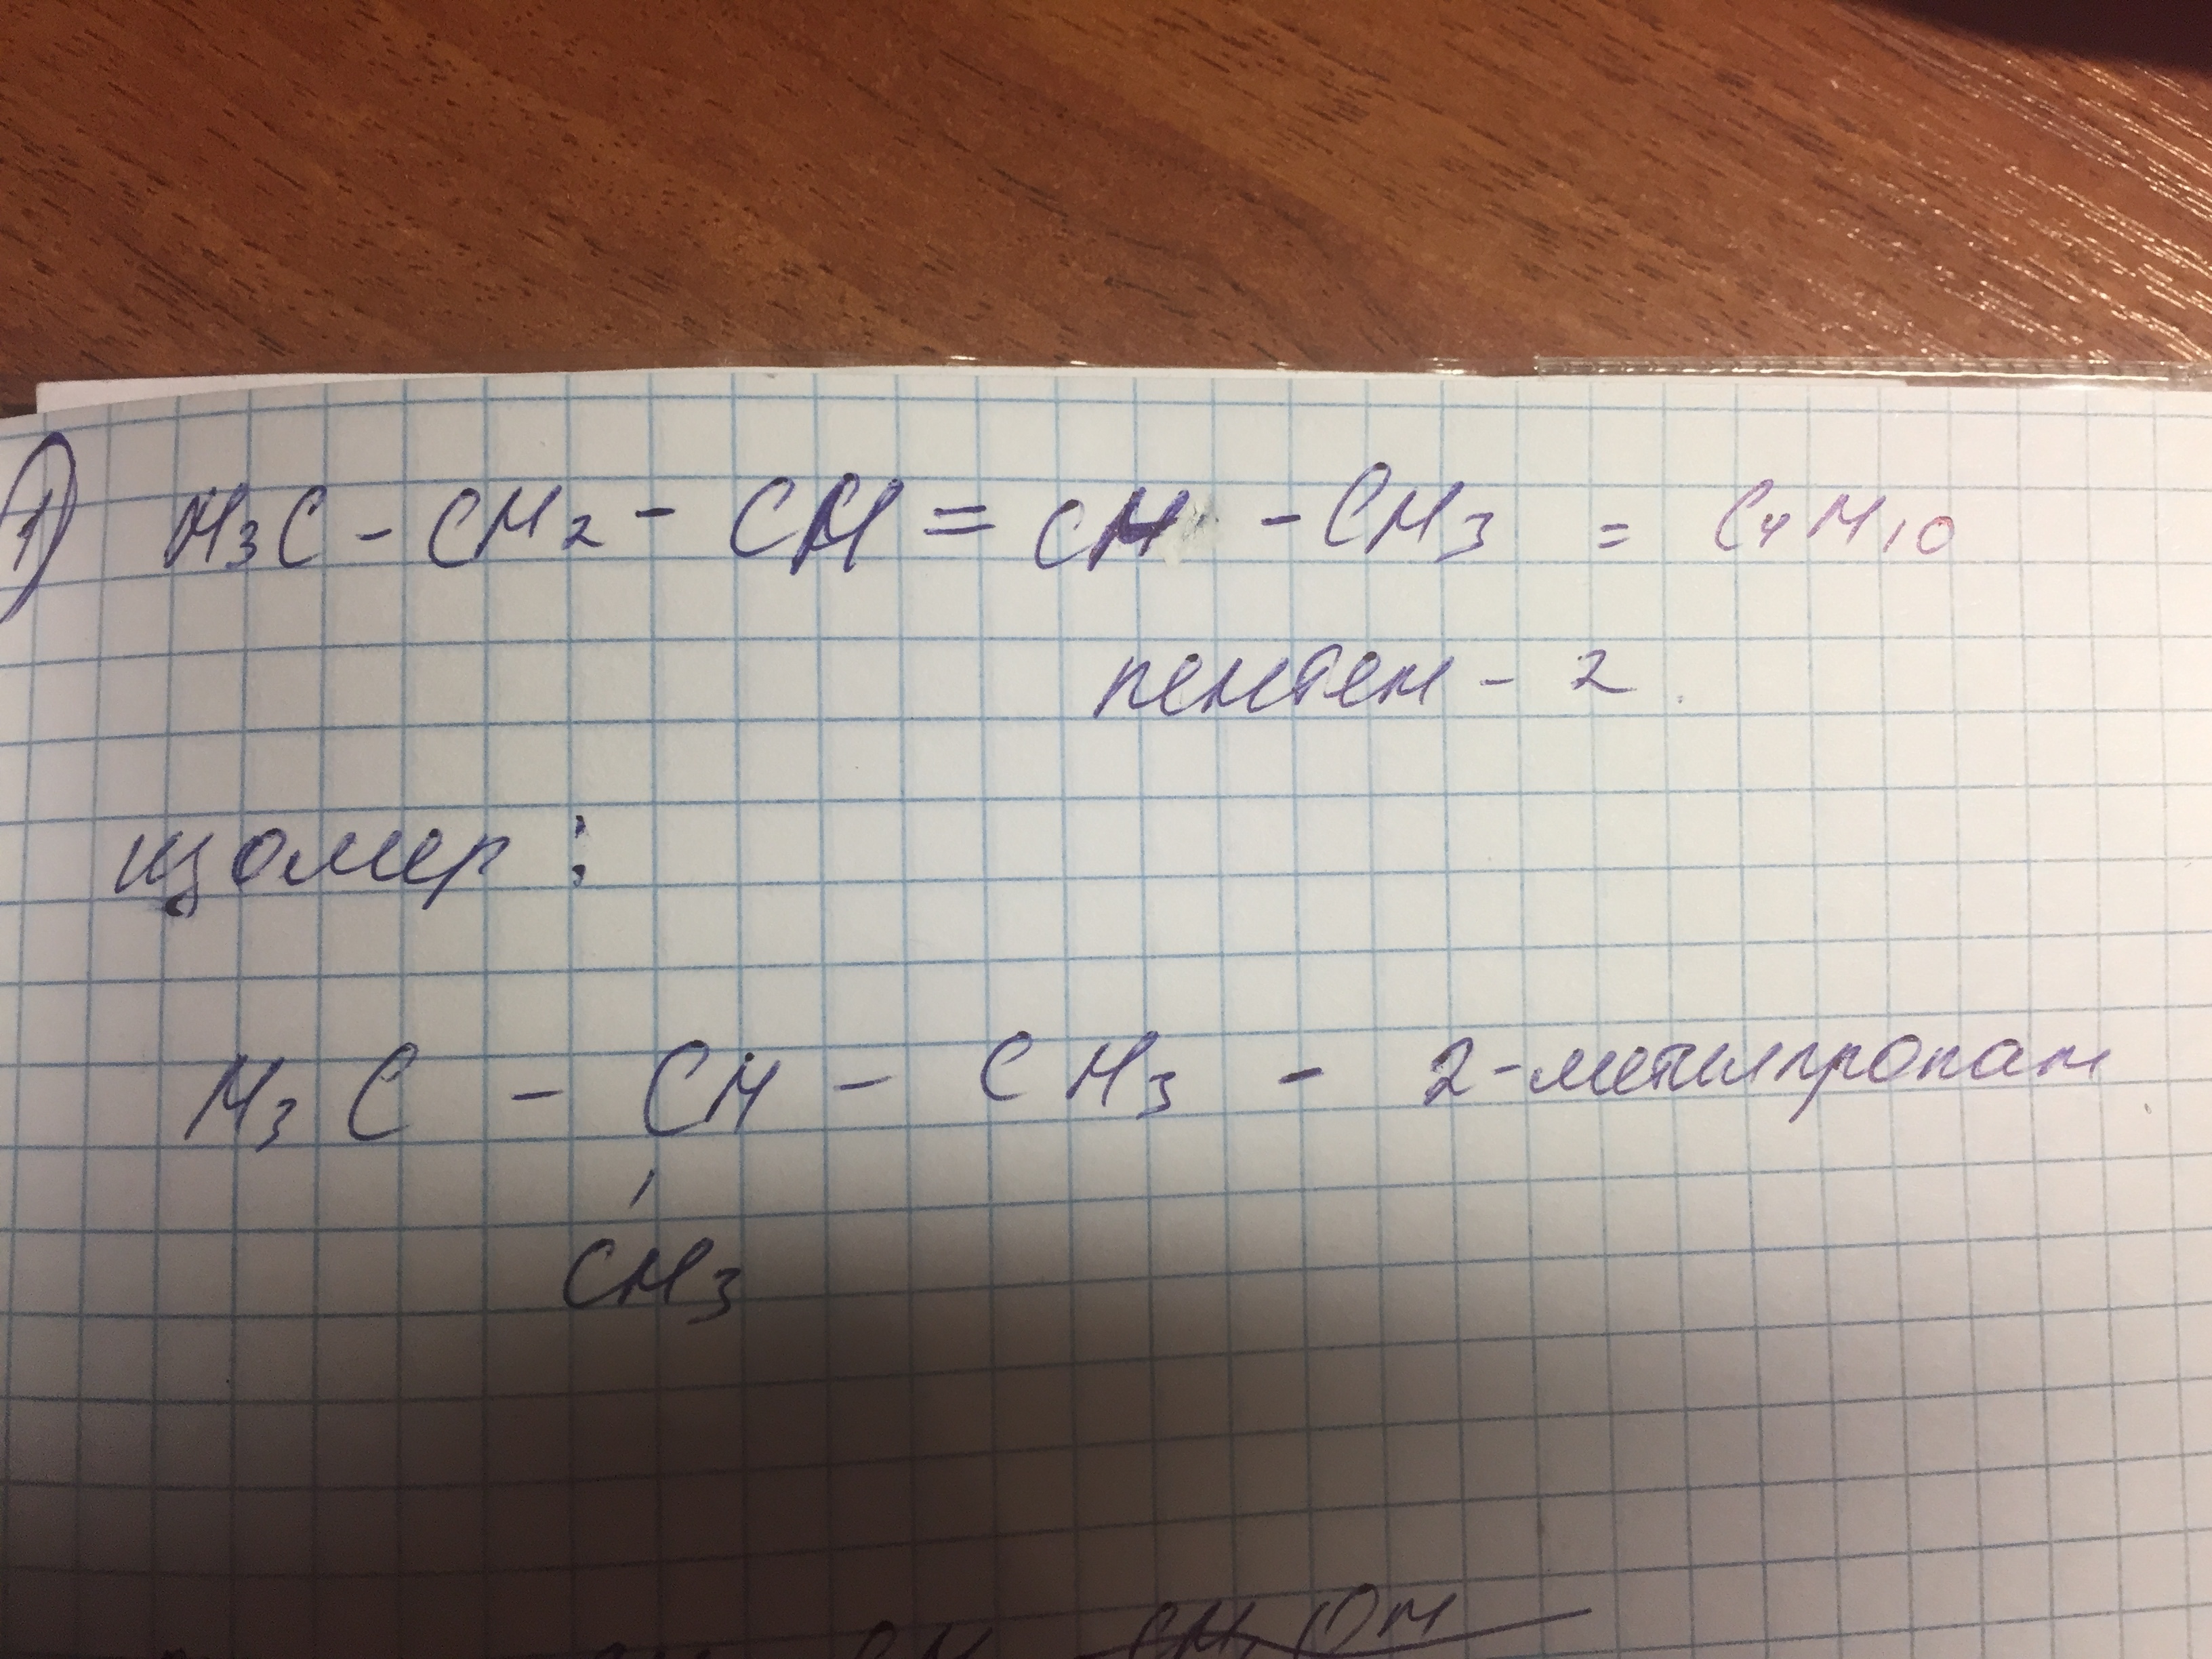 1) H3C - CH2 - CH = CH - CH3 = C4H10
пентен - 2
изомер :
H3C - CH - CH3 - 2-метилпропан
/
CH3